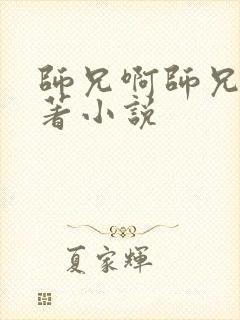 師兄啊師兄
著小説
夏家輝